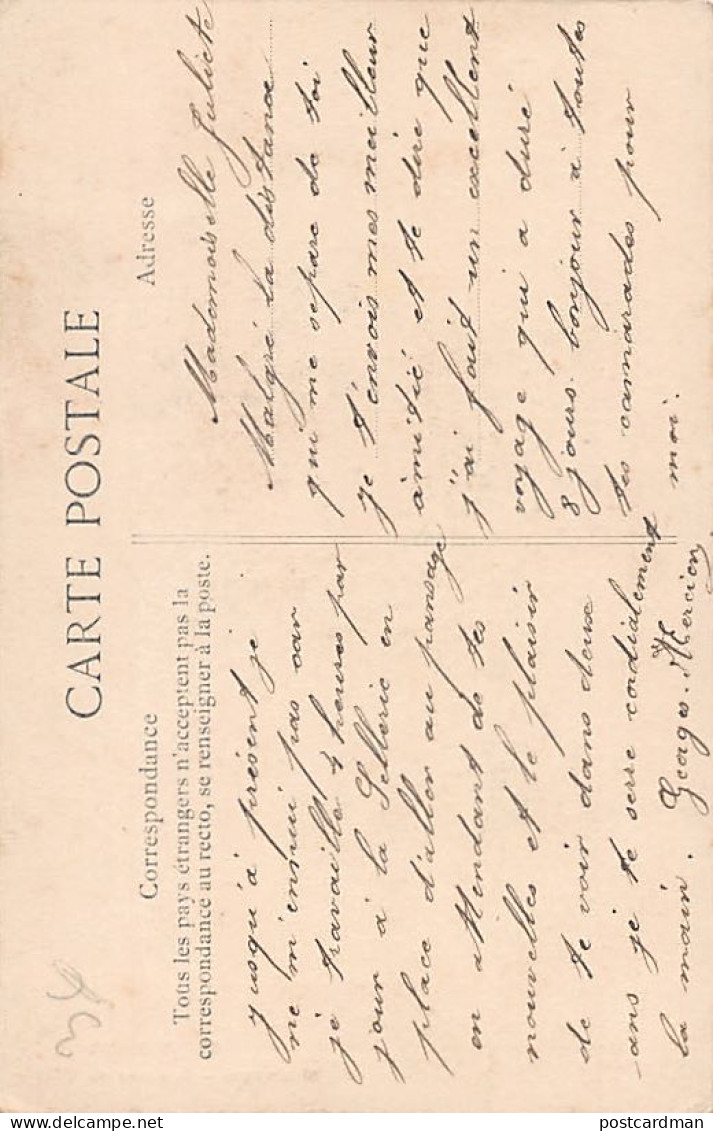 CARTE POSTALE
Correspondance
Tous les pays étrangers n'acceptent pas la
correspondance au recto, se renseigner à la poste.
Adresse
Mademoiselle Juliete
Malgré la distance
qui me sépare de toi
je t'envois mes meilleur
amitié et te dire que
j'ai fait un excellent
voyage qui a duré
8 jours bonjour à toutes
tes camarades pour
moi.
jusqu'à présent je
ne m'ennui pas car
je travaille 4 heures par
jour à la Sellerie en
place d'aller au pansage
en attendant de tes
nouvelles et le plaisir
de te voir dans deux
ans je te serre cordialement
la main. Georges
postcardman